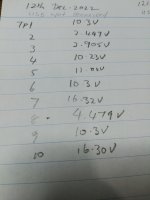 12th Dec. 2022
TP1 10.3V
2 2.449V
3 2.905V
4 10.23V
5 11.02V
6 10.3V
7 16.32V
8. 4.479V
9 10.3V
10 16.30V